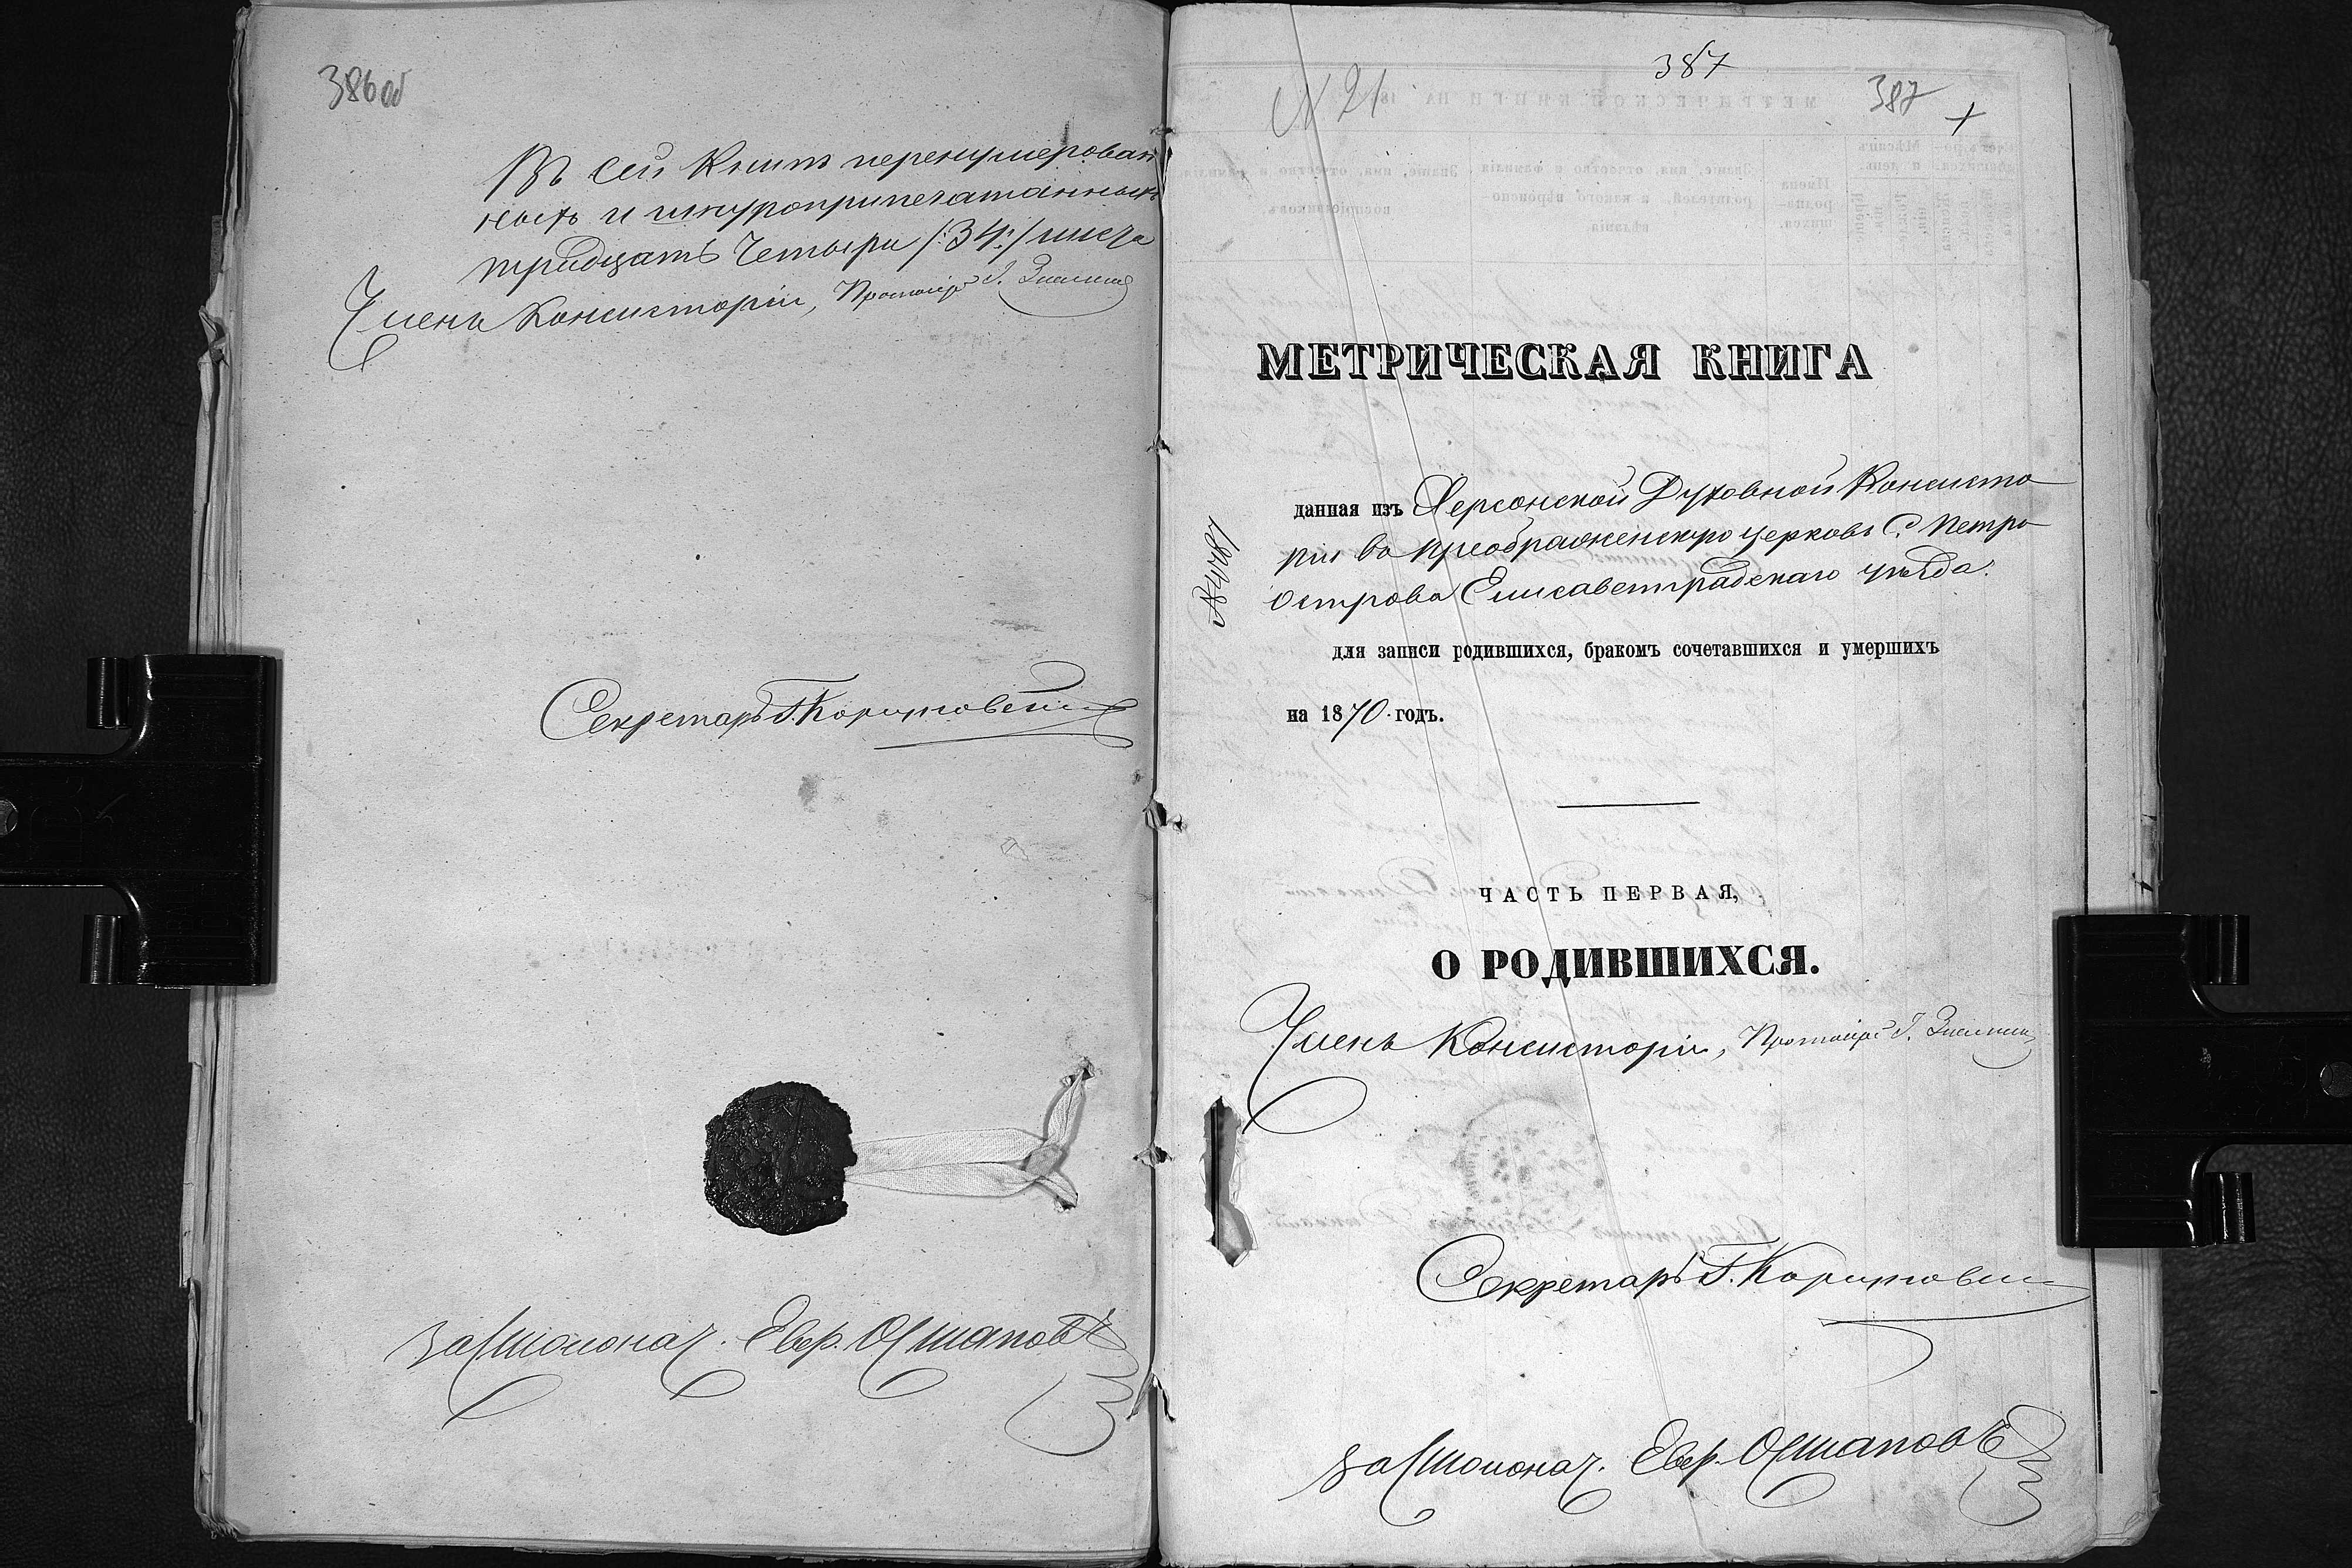 386 об
Въ сей книгѣ перенумерован
ныхъ и шнуроприпечатанныхъ
тридцать четыри /:34:/ листа
Членъ Консисторіи, Протоіерей І.
Секретарь Г.
За Столонач. Евѳ. Осташовъ
N 21
387
387
+
МЕТРИЧЕСКАЯ КНИГА
данная изъ Херсонской Духовной Консисто
ріи во Преображенскую церковь С. Петро
острова Елисаветградскаго уѣзда.
№ 4481
для записи родившихся, бракомъ сочетавшихся и умершихъ
на 1870 годъ.
ЧАСТЬ ПЕРВАЯ,
О РОДИВШИХСЯ.
Членъ Консисторіи, Протоіерей І.
Секретарь Г.
За Столонач. Евѳ.